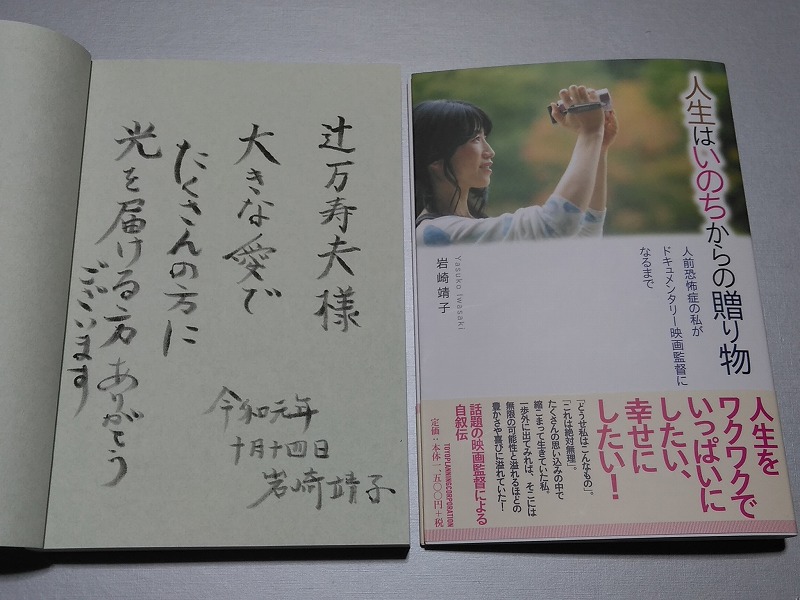 辻万寿夫様
大きな愛で
たくさんの方に
光を届ける方ありがとう
ございます
令和元年
十月十四日
岩崎靖子
人生はいのちからの贈り物
人前恐怖症の私が
ドキュメンタリー映画監督に
なるまで
Yasuko Iwasaki
岩崎靖子
人生を
ワクワクで
いっぱいに
したい、
幸せに
したい！
「どうせ私はこんなもの」。
「これは絶対無理」。
たくさんの思い込みの中で
縮こまって生きていた私。
一歩外に出てみれば、そこには
無限の可能性と溢れるほどの
豊かさや喜びに溢れていた！
話題の映画監督による
自叙伝
TOTOPLANNINGCORPORATION
定価：本体一、五〇〇円+税